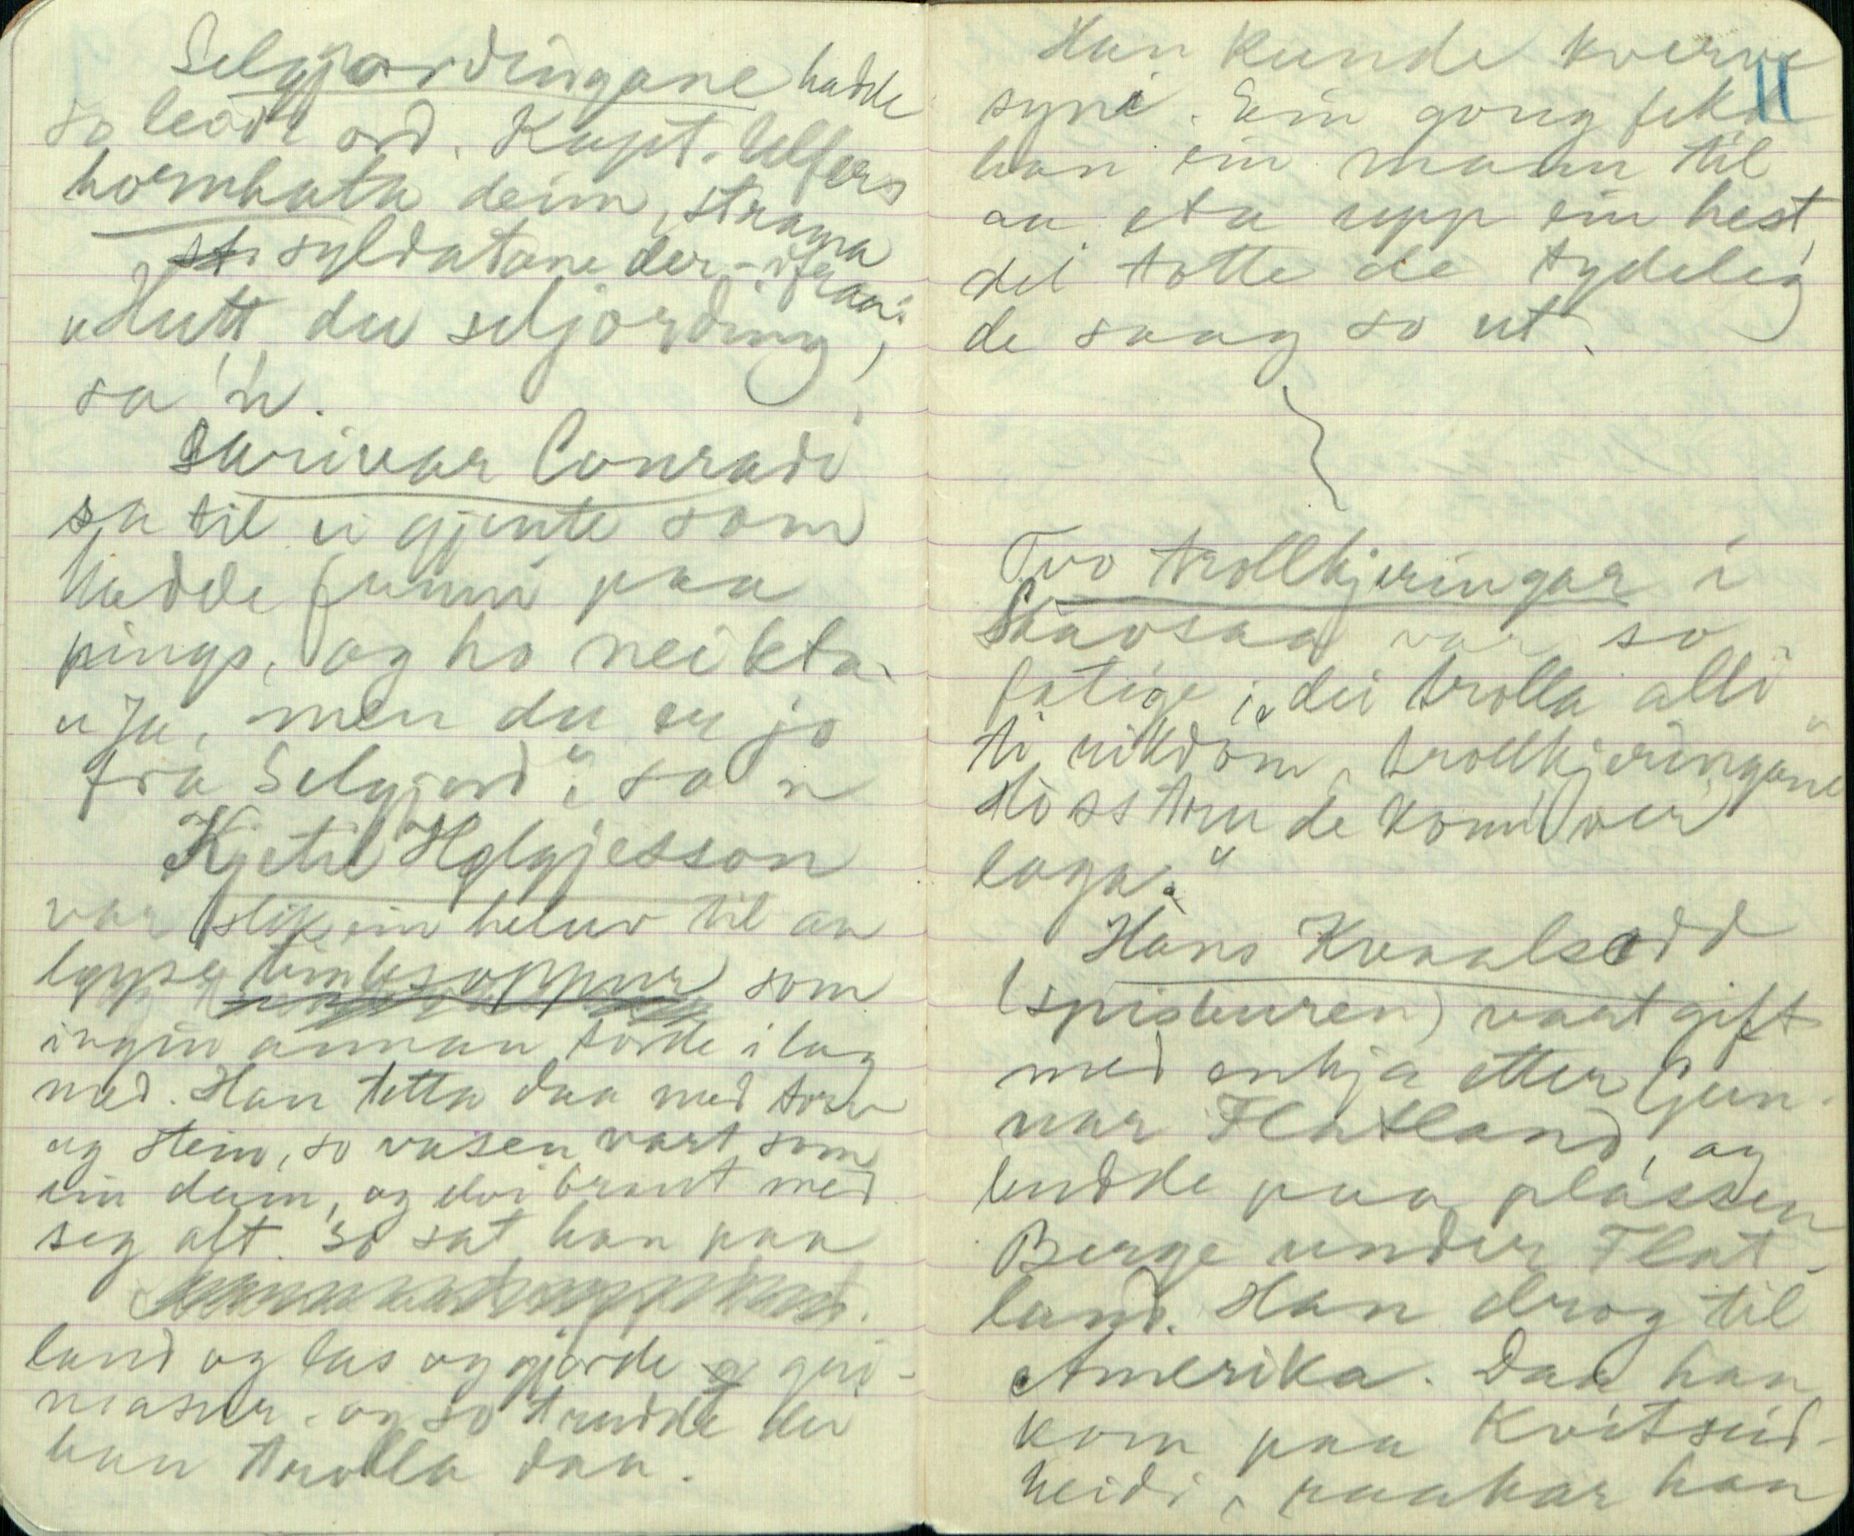 Selgjordingane hadde
so leidt ord. Kapt. Ulfers
hormhata deim, straya
syldatane der-ifraa:
"Hutt du seljording,
sa 'n.
Skrivar Conradi
sa til ei gjente som
hadde funni paa
pings, og ho neikta.
"Ja, men du er jo
fra Selgjord", sa 'n
Kjetil Helgjesson
var slik ein heluv til aa
løyse timbr som
ingin annan torde ilag
med. Han tetta daa med torv
og stein, so vasen vart som
ein dam, og dei brout med
seg alt. So sat han paa
land og las og gjorde gri-
masur. og so trudde dei
han trolla daa.
Han kunde kverve
syni. Ein gong fekk 11
han ein mann til
aa eta upp ein hest,
det totte de tydeleg
de saag so ut.
Tvo trollkjeringar i
Skavsaa var so
fatige, "dei trolla alli
ti rikdom, trollkjeringane
dess tru de komi ver
laga."
Hans Kvaalsodd
(spisburen) vart gift
med enkja etter Gun-
nar Flatland, og
budde paa plassen
Berge under Flat-
land. Han drog til
Amerika. Daa han
kom paa Kvitseid-
heidi, raakar han